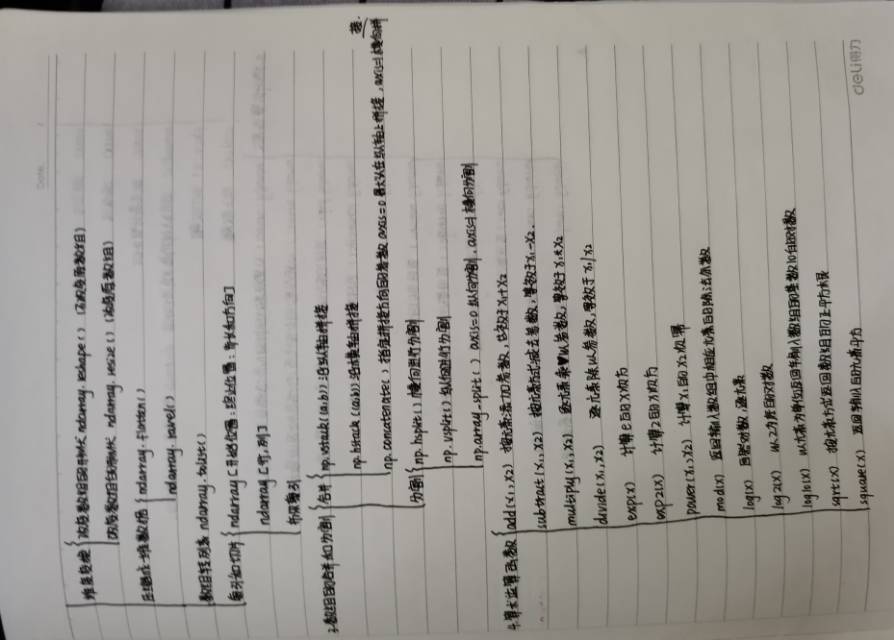 维度变换 改变数组的形状 ndarray.reshape() (不改变原数组)
改变数组的形状 ndarray.resize() (改变原数组)
压缩成一维数组 ndarray.flatten()
ndarray.ravel()
数组转列表 ndarray.tolist()
索引和切片 ndarray[开始位置:终止位置:步长和方向]
ndarray[行,列]
布尔索引
3.数组的合并和分割 合并 np.vstack((a,b)) 沿纵轴拼接
np.hstack((a,b)) 沿横轴拼接
np.concatenate() 指定拼接方向的参数 axis=0 默认在纵轴上拼接,axis=1横向拼接.
分割 np.hsplit() 横向进行分割
np.vsplit() 纵向进行分割
np.array_split() axis=0 纵向分割,axis=1横向分割
4.算术运算函数 add(x1,x2) 按元素添加参数,等效于x1+x2
subtract(x1,x2) 按元素方式减去参数,等效于x1-x2.
multiply(x1,x2) 逐元素乘以参数,等效于x1*x2
divide(x1,x2) 逐元素除以参数,等效于x1/x2
exp(x) 计算e的x次方
exp2(x) 计算2的x次方
power(x1,x2) 计算x1的x2次幂
mod(x) 返回输入数组中相应元素的除法余数
log(x) 自然对数,逐元素
log2(x) 以2为底的对数
log10(x) 以元素为单位返回输入数组的基数10的对数
sqrt(x) 按元素方式返回数组的正平方根
square(x) 返回输入的元素平方
deli得力
Date